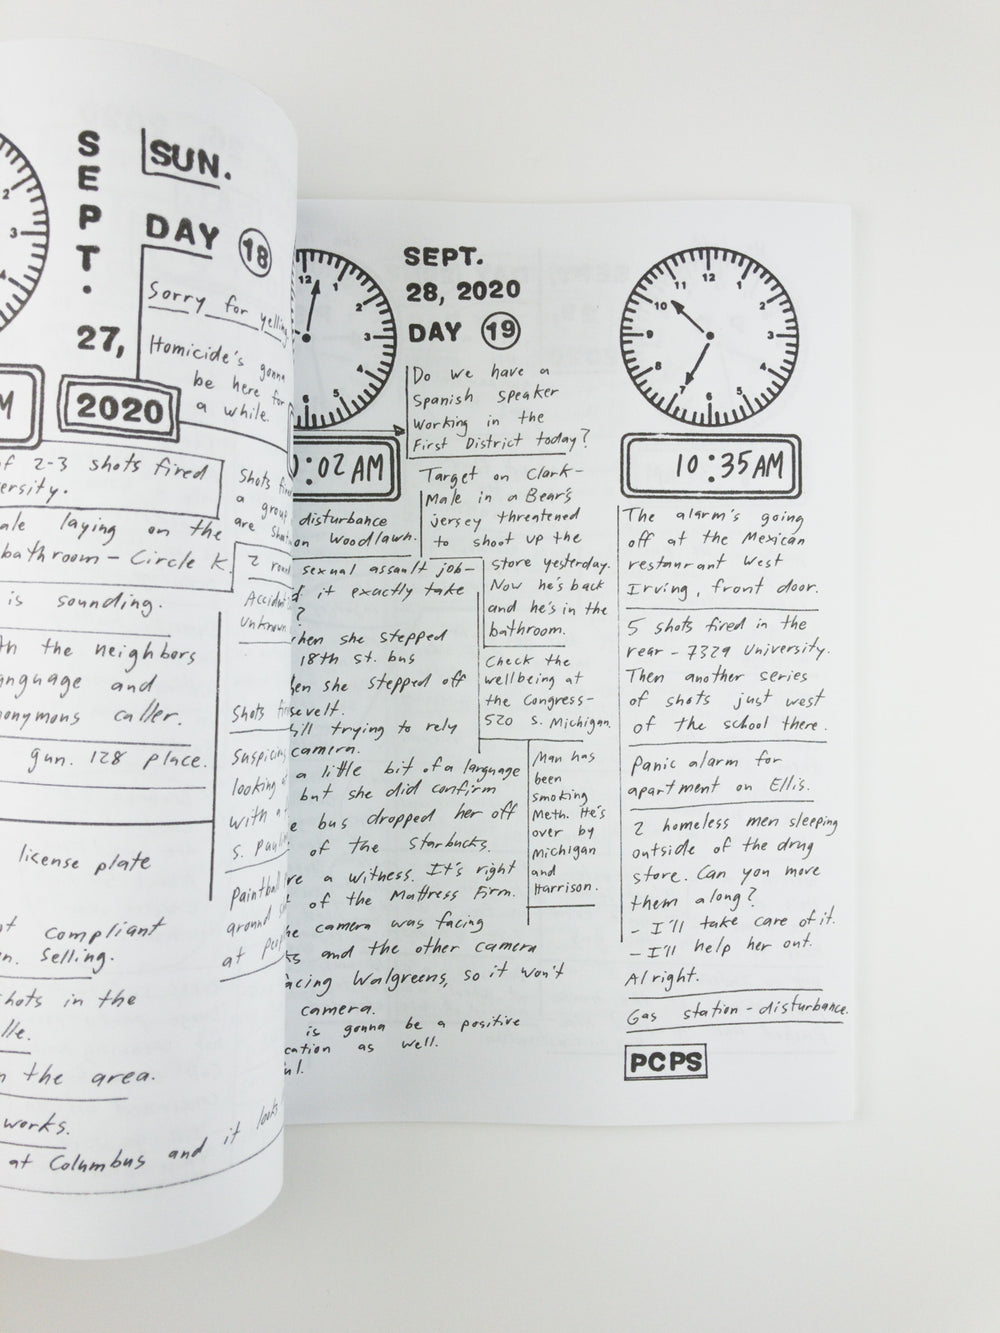 SEPT.
27,
2020
SUN.
DAY 18
Sorry for
Homicide's gonna
be here for
a while.
of 2-3 shots fired
laying on the
bathroom - Circle K.
is sounding.
the neighbors
and
caller.
gun. 128 place.
license plate
compliant
selling.
in the
the area.
at Columbus and it looks
Shots
a
group
are
2
looking
with a
S.
Paintball
around
at
12
3
5
6
:02 AM
disturbance
on Woodlawn.
sexual assault job-
it exactly take
?
when she stepped
18th St. bus
when she stepped off
trying to rely
camera.
a little bit of a language
but she did confirm
bus dropped her off
of the Starbucks.
a witness. It's right
of the Mattress Firm.
camera was facing
and the other camera
facing Walgreens, so it won't
camera.
is gonna be a positive
as well.
SEPT.
28, 2020
DAY 19
Do we have a
Spanish speaker
working in the
First District today?
Target on Clark-
Male in a Bear's
jersey threatened
to shoot up the
store yesterday.
Now he's back
and he's in the
bathroom.
Check the
wellbeing at
the Congress-
520 S. Michigan.
Man has
been
smoking
Meth. He's
over by
Michigan
and
Harrison.
12
1
2
3
4
5
6
7
8
9
10
11
10:35AM
The alarm's going
off at the Mexican
restaurant West
Irving, front door.
5 shots fired in the
rear - 7329 University.
Then another series
of shots just west
of the school there.
Panic alarm for
apartment on Ellis.
2 homeless men sleeping
outside of the drug
store. Can you move
them along?
- I'll take care of it.
- I'll help her out.
Alright.
Gas station - disturbance.
PCPS